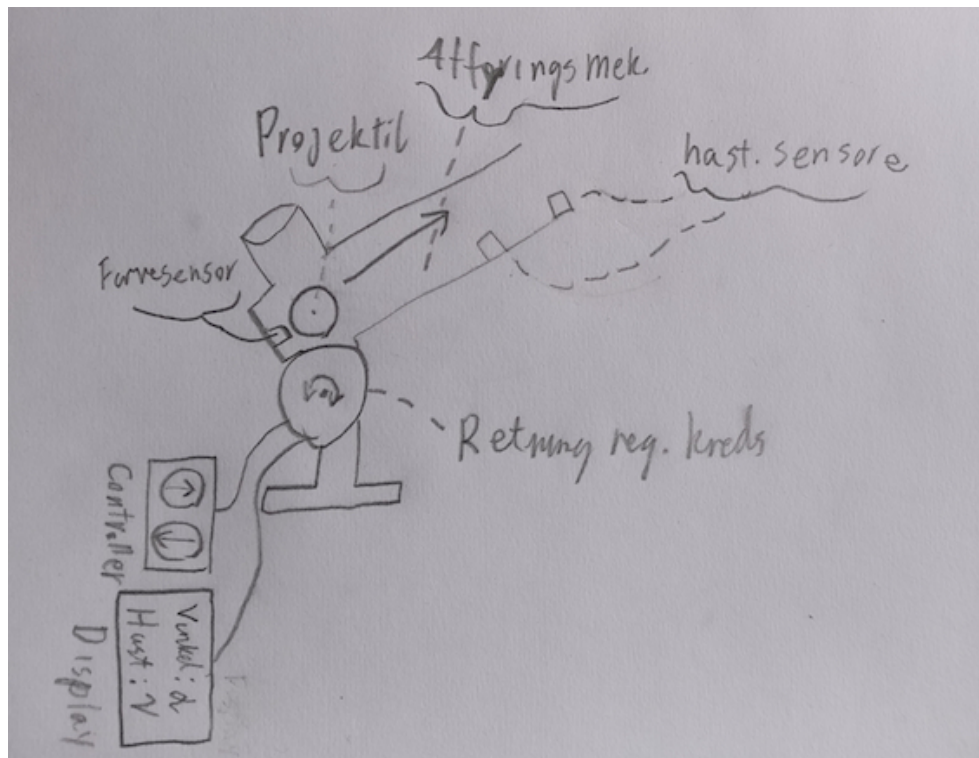 Affyrings mek.
Projektil
hast. sensore
Farvesensor
Retning reg. kreds
Controller
Vinkel: α
Hast: V
Display